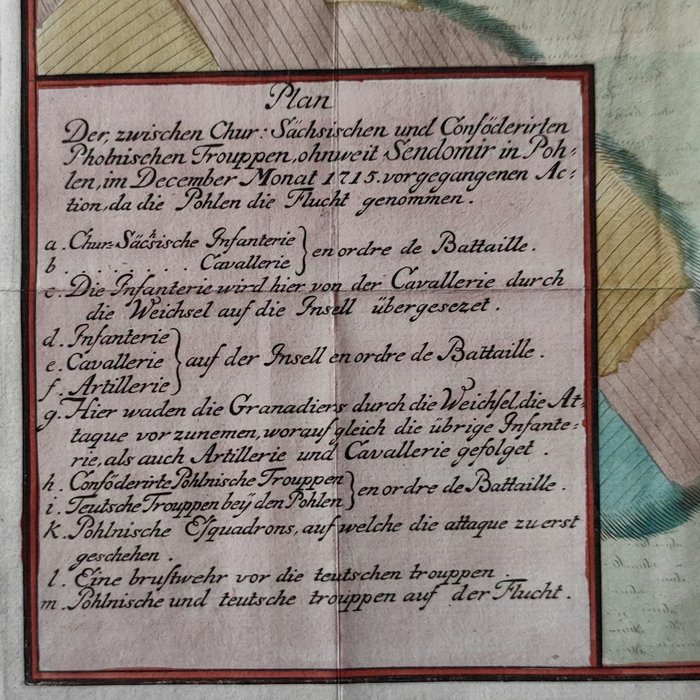 Plan
Der, zwischen Chur: Sächsischen und Conföderirten
Phohnischen Trouppen, ohnweit Sendomir in Poh-
len, im December Monat 1715. vorgegangenen Ac-
tion, da die Pohlen die Flucht genommen.
a. Chur-Sächsische Infanterie } en ordre de Battaille.
b. . . . . . . . Cavallerie
c. Die Infanterie wird hier von der Cavallerie durch
die Weichsel auf die Insell übergesezet.
d. Infanterie
e. Cavallerie } auf der Insell en ordre de Battaille.
f. Artillerie
g. Hier waden die Granadiers durch die Weichsel, die At-
taque vor zunemen, worauf gleich die übrige Infante-
rie, als auch Artillerie und Cavallerie gefolget.
h. Confoderirte Pohlnische Trouppen } en ordre de Battaille.
i. Teutsche Trouppen beÿ den Pohlen
k. Pohlnische Esquadrons, auf welche die attaque zu erst
geschehen.
l. Eine brustwehr vor die teutschen trouppen.
m. Pohlnische und teutsche trouppen auf der Flucht.